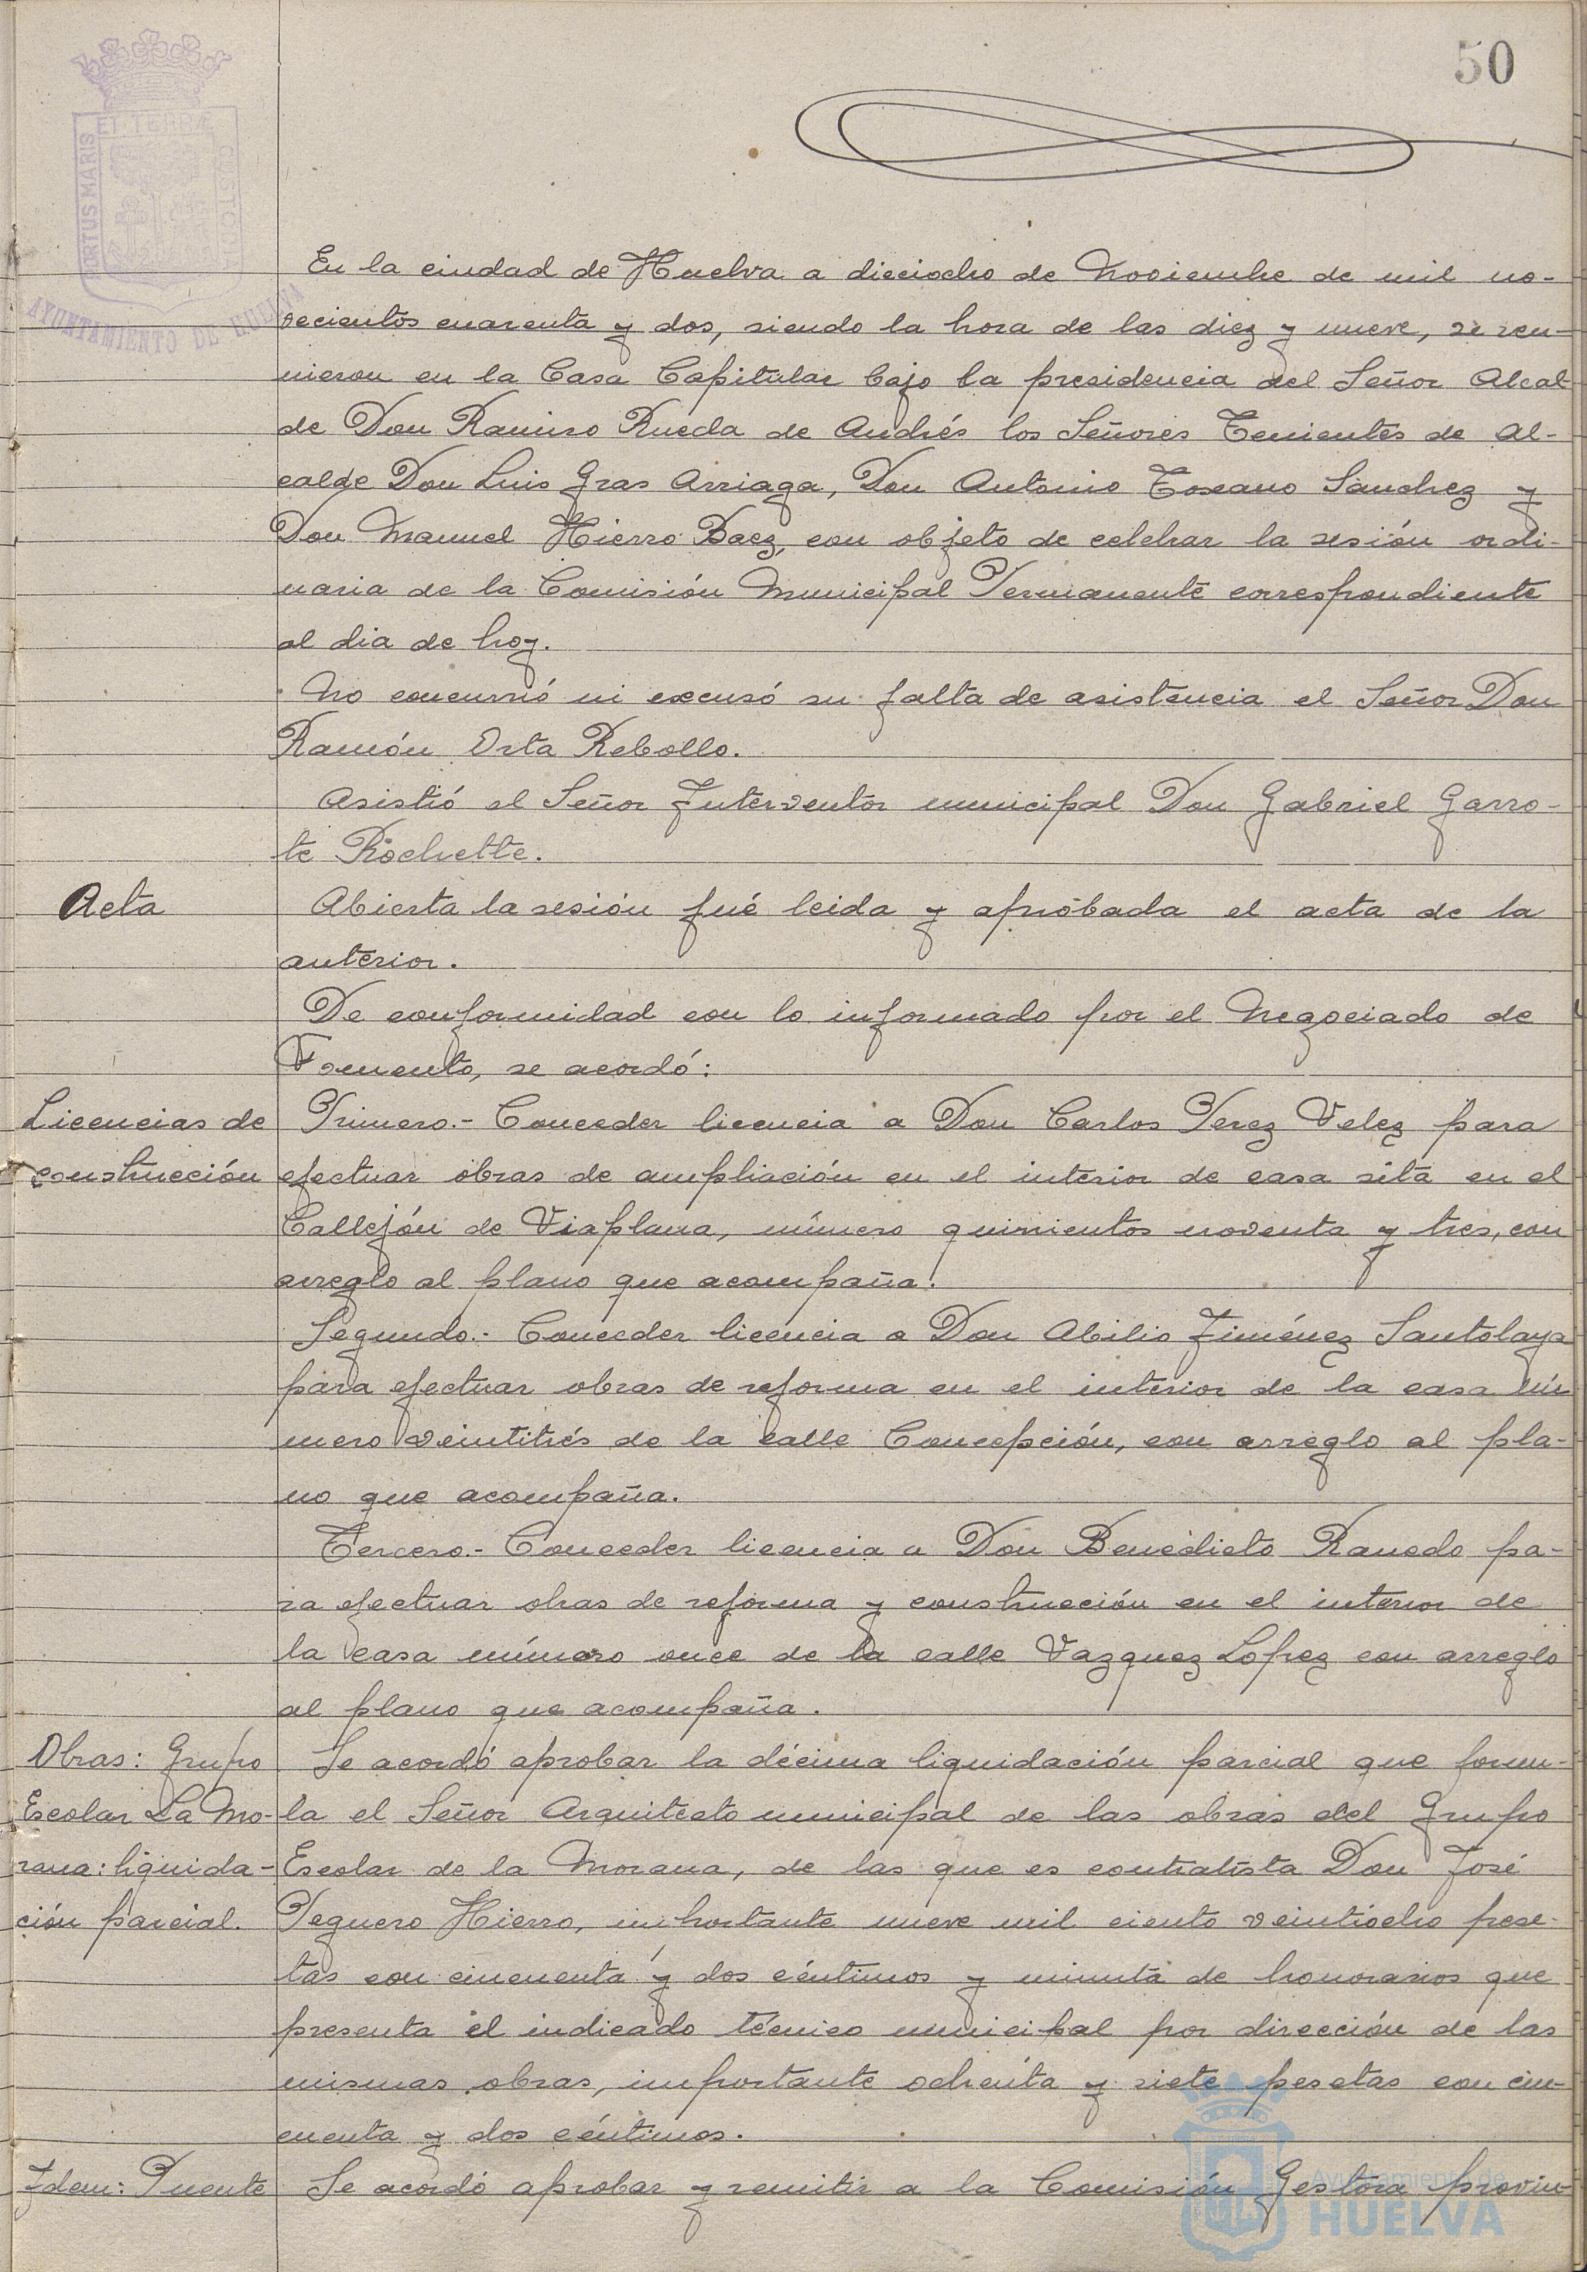 50
ET TERRÆ
PORTUS MARIS
CUSTODIA
AYUNTAMIENTO DE HUELVA
En la ciudad de Huelva a dieciocho de Noviembre de mil no-
vecientos cuarenta y dos, siendo la hora de las diez y nueve, se reu-
nieron en la Casa Capitular bajo la presidencia del Señor Alcal-
de Don Ramiro Rueda de Andrés los Señores Tenientes de Al-
calde Don Luis Gras Arriaga, Don Antonio Toscano Sanchez y
Don Manuel Hierro Baez, con objeto de celebrar la sesión ordi-
naria de la Comisión Municipal Permanente correspondiente
al dia de hoy.
No concurrió ni excusó su falta de asistencia el Señor Don
Ramón Orta Rebollo.
Asistió el Señor Interventor municipal Don Gabriel Garro-
te Rochette.
Acta
Abierta la sesión fué leida y aprobada el acta de la
anterior.
De conformidad con lo informado por el Negociado de
Fomento, se acordó:
Licencias de
construcción
Primero.- Conceder licencia a Don Carlos Perez Velez para
efectuar obras de ampliación en el interior de casa sita en el
Callejón de Viaplana, número quinientos noventa y tres, con
arreglo al plano que acompaña.
Segundo.- Conceder licencia a Don Abilio Jiménez Santolaya
para efectuar obras de reforma en el interior de la casa nú
mero veintitrés de la calle Concepción, con arreglo al pla-
no que acompaña.
Tercero.- Conceder licencia a Don Benedicto Ranedo pa-
ra efectuar obras de reforma y construcción en el interior de
la casa número once de la calle Vazquez Lopez con arreglo
al plano que acompaña.
Obras: Grupo
Escolar La Mo-
rana: liquida-
ción parcial.
Se acordó aprobar la décima liquidación parcial que formu-
la el Señor Arquitecto municipal de las obras del Grupo
Escolar de la Morana, de las que es contratista Don José
Peguero Hierro, importante nueve mil ciento veintiocho pese-
tas con cincuenta y dos céntimos y minuta de honorarios que
presenta el indicado técnico municipal por dirección de las
mismas obras, importante ochenta y siete pesetas con cin-
cuenta y dos céntimos.
Idem: Puente
Se acordó aprobar y remitir a la Comisión Gestora provin-
Ayuntamiento de
HUELVA